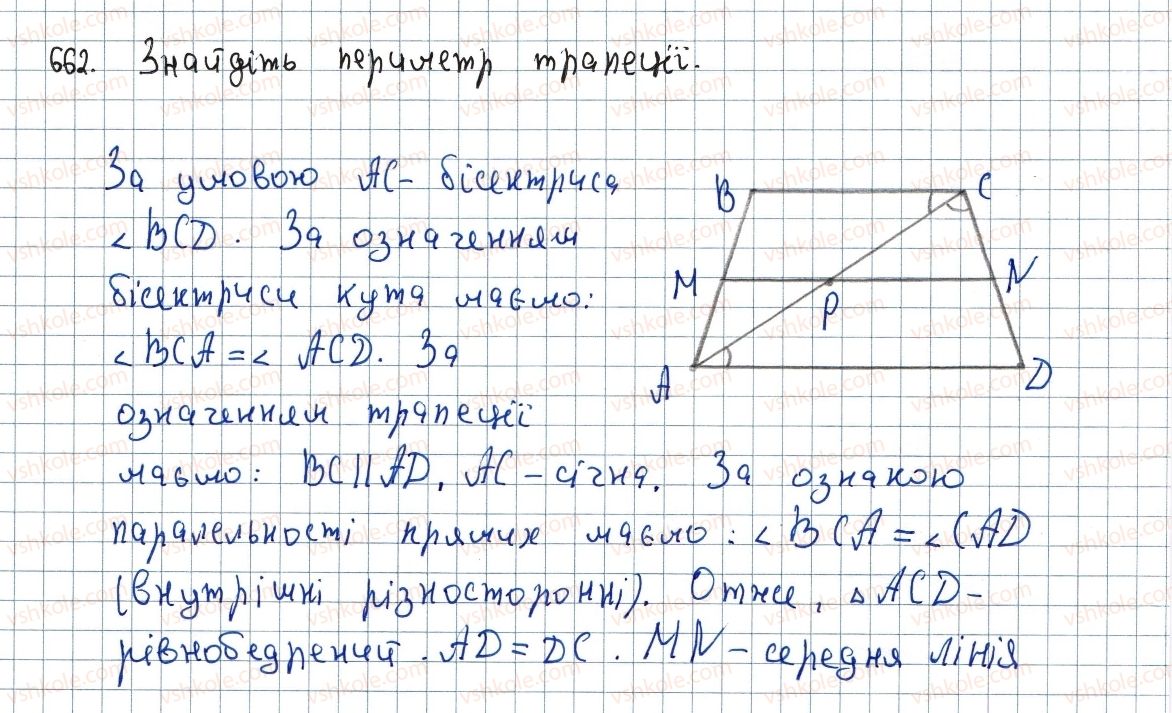 662. Знайдіть периметр трапеції.
За умовою AC - бісектриса
∠BCD. За означенням
бісектриси кута маємо:
∠BCA = ∠ ACD. За
означенням трапеції
маємо: BC || AD, AC - січна. За ознакою
паралельності прямих маємо: ∠BCA = ∠CAD
(внутрішні різносторонні). Отже, △ACD -
рівнобедрений. AD = DC. MN - середня лінія
B
C
M
N
P
A
D
vshkole.com